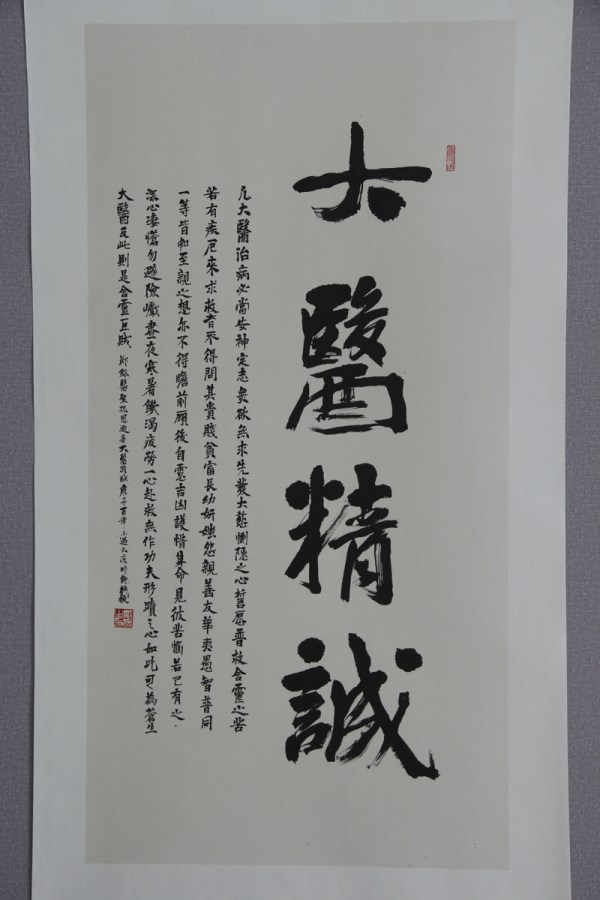 大醫精誠
凡大醫治病必當安神定志無欲無求先發大慈惻隱之心誓愿普救含靈之苦
若有疾厄來求救者不得問其貴賤貧富長幼妍媸怨親善友華夷愚智普同
一等皆如至親之想亦不得瞻前顧後自慮吉凶護惜身命見彼苦惱若己有之
深心悽愴勿避險巇晝夜寒暑飢渴疲勞一心赴救無作功夫形蹟之心如此可為蒼生
大醫反此則是含靈巨賊